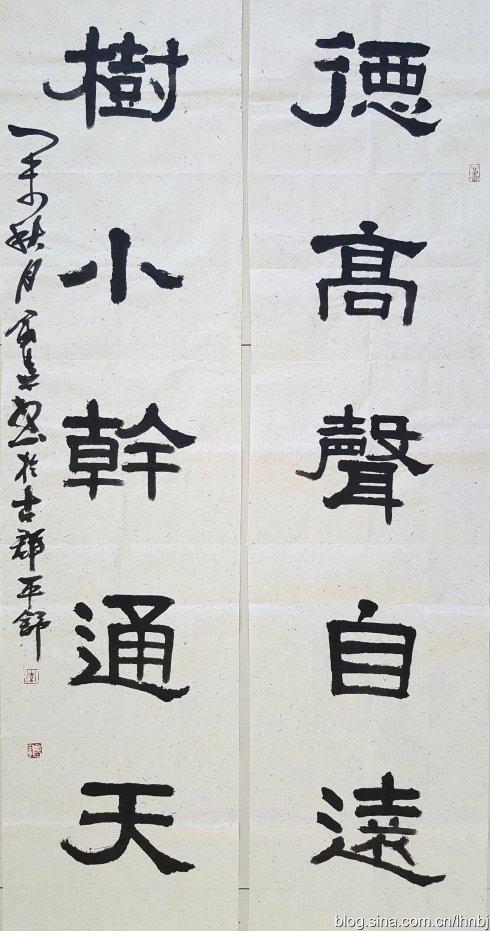 德高聲自遠
樹小幹通天
乙未秋月
於古郡平舒
blog.sina.com.cn/lhnbj